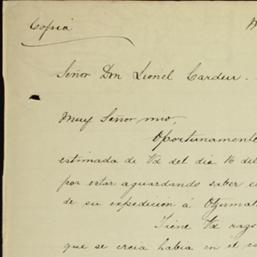 Copia
Señor Don Lionel Carden.
Muy Señor mio,
Oportunamente
estimada de Vd del dia 16 del
por estar aguardando saber
de su expedicion á
Tiene Vd
que se creia habia en el